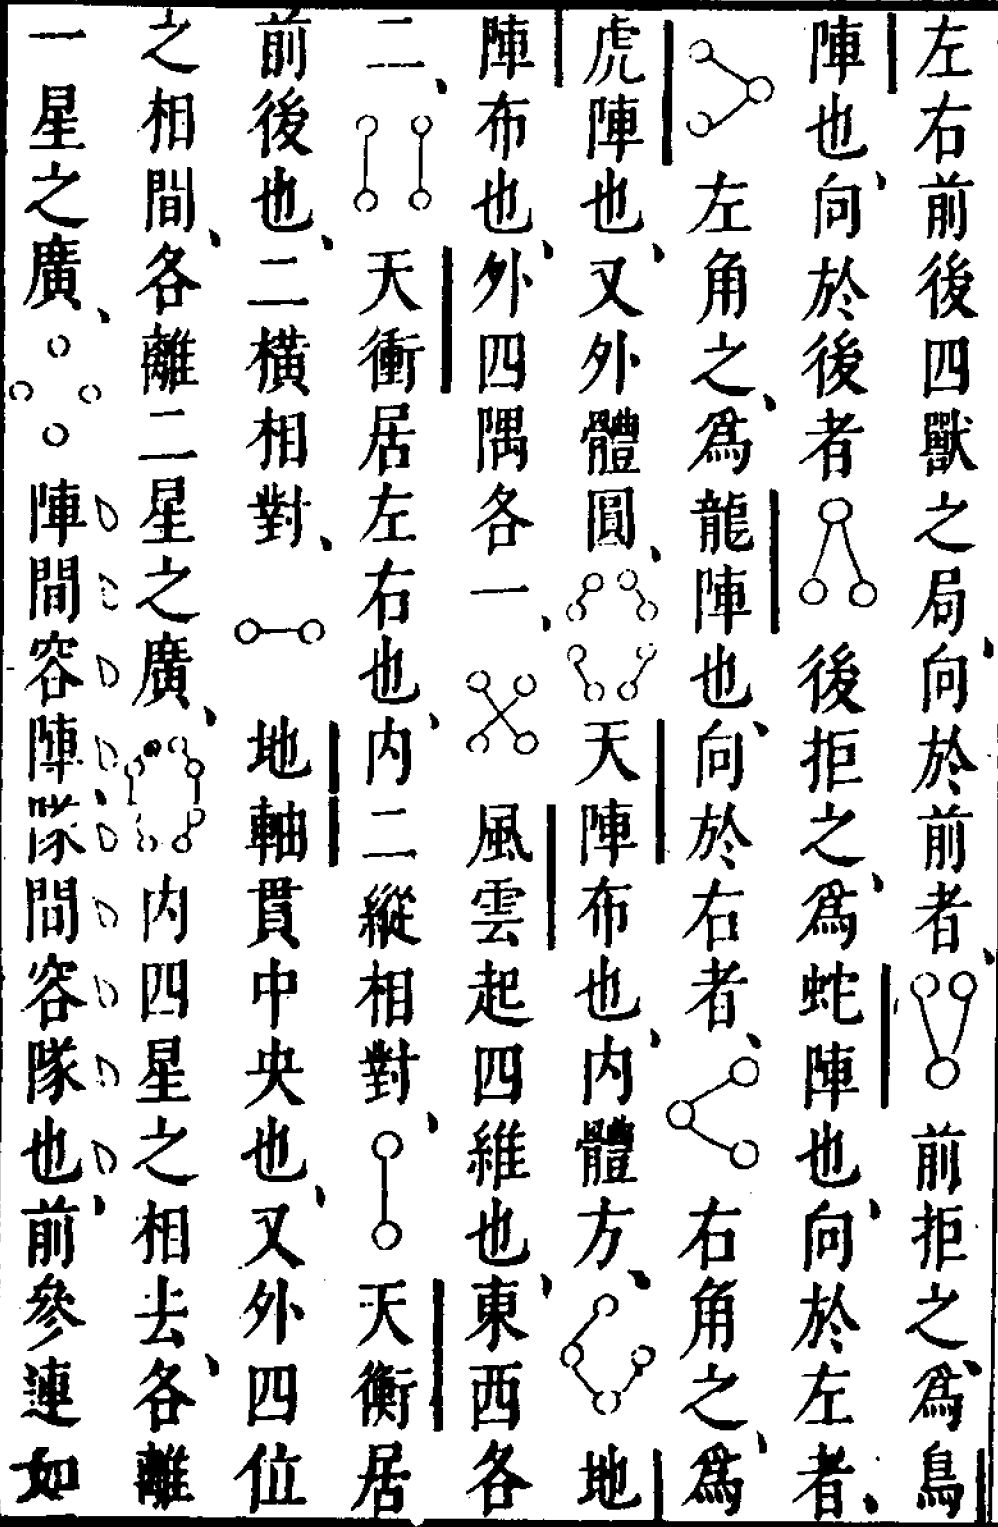 左右前後四獸之局向於前者、前拒之、爲鳥
陣也、向於後者後拒之、爲蛇陣也、向於左者、
左角之、爲龍陣也、向於右者、右角之、爲
虎陣也、又外體圓、天陣布也、内體方、地
陣布也、外四隅各一、風雲起四維也、東西各
二、天衝居左右也、内二縱相對、天衡居
前後也、二橫相對、地軸貫中央也、又外四位
之相間、各離二星之廣、内四星之相去、各離
一星之廣、陣間容陣、隊間容隊也、前參連如